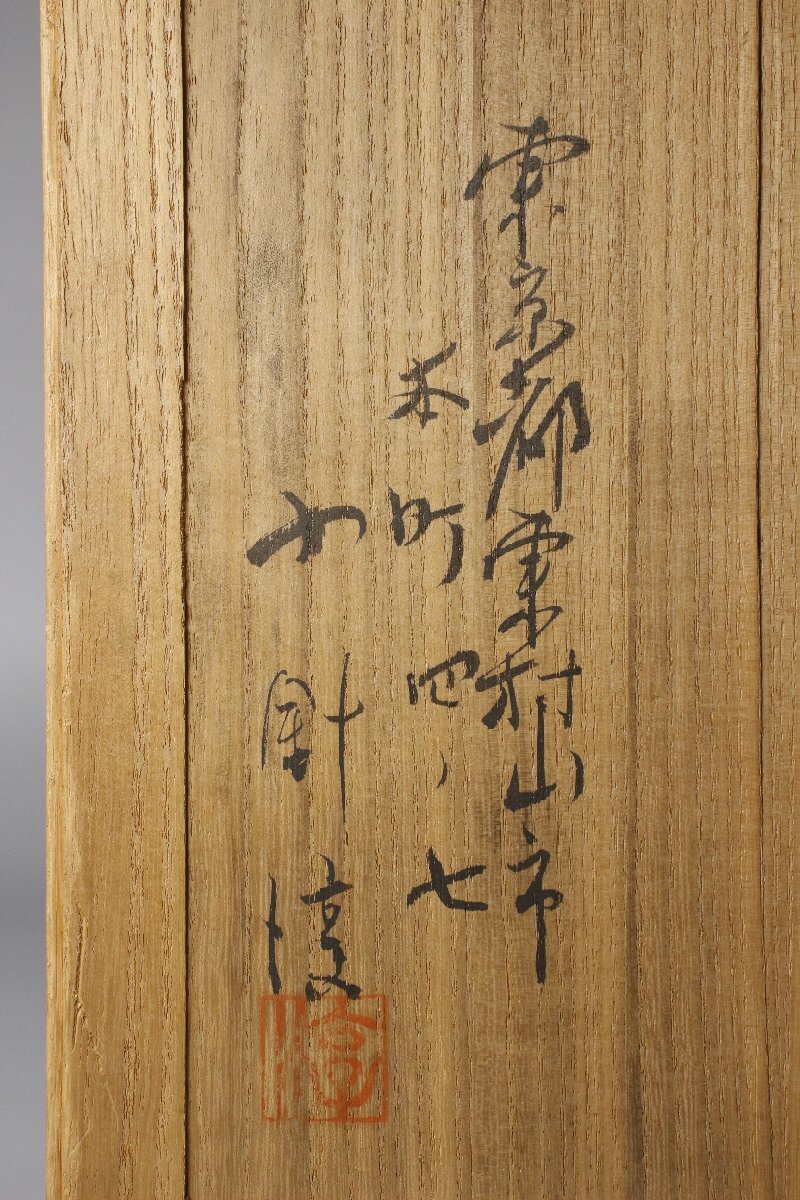 東京都東村山市
本町四ノ七
小針淳